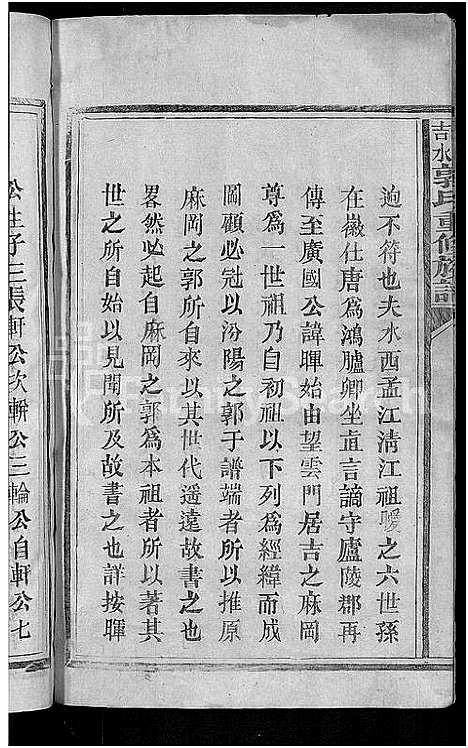 吉水郭氏重修族譜
逈不符也夫水西孟江淸江祖曖之六世孫
在徽仕唐爲鴻臚卿坐直言謫守廬陵郡再
傳至廣國公諱暉始由望雲門居吉之麻岡
尊爲一世祖乃自初祖以下列爲經緯而成
圖顧必冠以汾陽之郭于譜端者所以推原
麻岡之郭所自來以其世代遥遠故書之也
畧然必起自麻岡之郭爲本祖者所以著其
世之所自始以見聞所及故書之也詳按暉
公生子三長軒公次輧公三輪公自軒公七